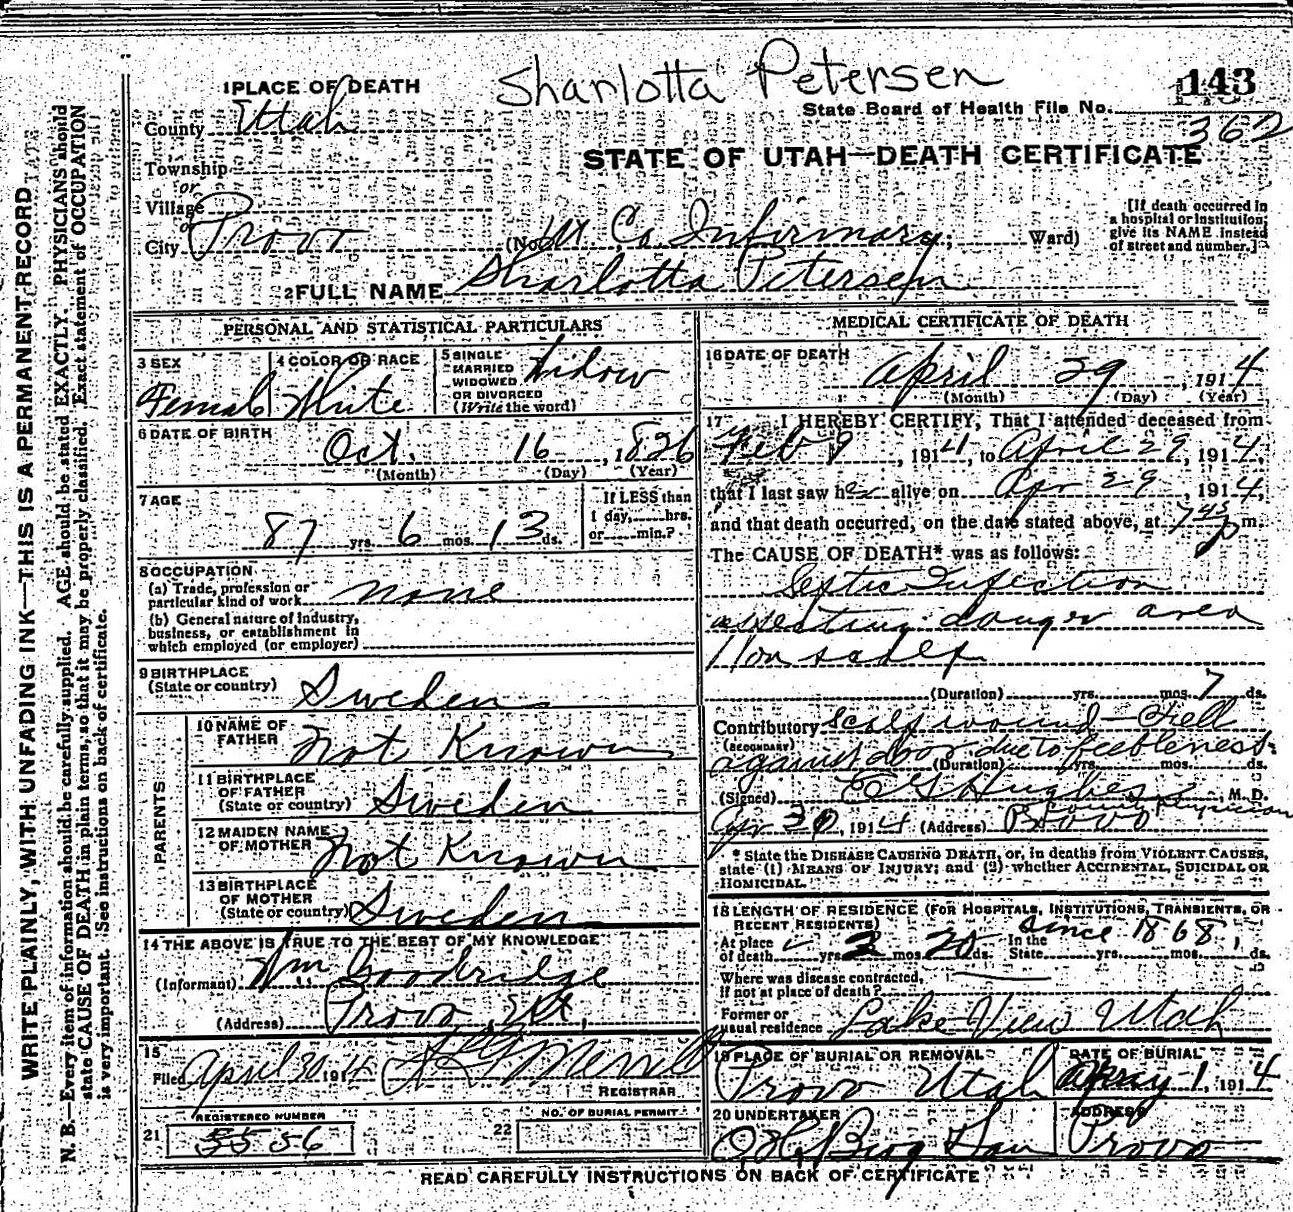 Sharlotta Petersen
143
State Board of Health File No.
362
STATE OF UTAH—DEATH CERTIFICATE
1 PLACE OF DEATH
County Utah
Township
or
Village
or
City Provo (No. Ut Co. Infirmary; Ward)
[If death occurred in a hospital or institution, give its NAME instead of street and number.]
2 FULL NAME Sharlotta Petersen
PERSONAL AND STATISTICAL PARTICULARS
3 SEX
Female
4 COLOR OR RACE
White
5 SINGLE
MARRIED
WIDOWED
OR DIVORCED
(Write the word)
Widow
6 DATE OF BIRTH
Oct. 16, 1826
(Month) (Day) (Year)
7 AGE
87 yrs. 6 mos. 13 ds.
If LESS than
1 day, hrs.
or min.?
8 OCCUPATION
(a) Trade, profession or
particular kind of work none
(b) General nature of industry,
business, or establishment in
which employed (or employer)
9 BIRTHPLACE
(State or country) Sweden
PARENTS
10 NAME OF
FATHER Not Known
11 BIRTHPLACE
OF FATHER
(State or country) Sweden
12 MAIDEN NAME
OF MOTHER Not Known
13 BIRTHPLACE
OF MOTHER
(State or country) Sweden
14 THE ABOVE IS TRUE TO THE BEST OF MY KNOWLEDGE
(Informant) Wm Goodridge
(Address) Provo, Ut,
15
Filed April 30 1914 Merrill
REGISTRAR
21 REGISTERED NUMBER
22 NO. OF BURIAL PERMIT
MEDICAL CERTIFICATE OF DEATH
16 DATE OF DEATH
April 29, 1914
(Month) (Day) (Year)
17 I HEREBY CERTIFY, That I attended deceased from
Feb 9, 1914, to April 29, 1914,
that I last saw her alive on Apr 29, 1914,
and that death occurred, on the date stated above, at 7 45 p m.
The CAUSE OF DEATH* was as follows:
Septic Infection
danger area
on scalp
(Duration) yrs. mos. 7 ds.
Contributory scalp wound — Fell
(SECONDARY)
against door due to feebleness.
(Duration) yrs. mos. ds.
(Signed) Hughes, M. D.
County Physician
Apr 30, 1914 (Address) Provo
* State the DISEASE CAUSING DEATH, or, in deaths from VIOLENT CAUSES,
state (1) MEANS OF INJURY; and (2) whether ACCIDENTAL, SUICIDAL OR
HOMICIDAL.
18 LENGTH OF RESIDENCE (FOR HOSPITALS, INSTITUTIONS, TRANSIENTS, OR
RECENT RESIDENTS)
since 1868,
At place
of death yrs. 2 mos. 20 ds. In the
State yrs. mos. ds.
Where was disease contracted,
if not at place of death?
Former or
usual residence Lake View Utah
19 PLACE OF BURIAL OR REMOVAL
Provo Utah
DATE OF BURIAL
May 1, 1914
20 UNDERTAKER
ADDRESS
Provo
READ CAREFULLY INSTRUCTIONS ON BACK OF CERTIFICATE
WRITE PLAINLY, WITH UNFADING INK—THIS IS A PERMANENT RECORD
N. B.—Every item of information should be carefully supplied. AGE should be stated EXACTLY. PHYSICIANS should
state CAUSE OF DEATH in plain terms, so that it may be properly classified. Exact statement of OCCUPATION
is very important. (See instructions on back of certificate.